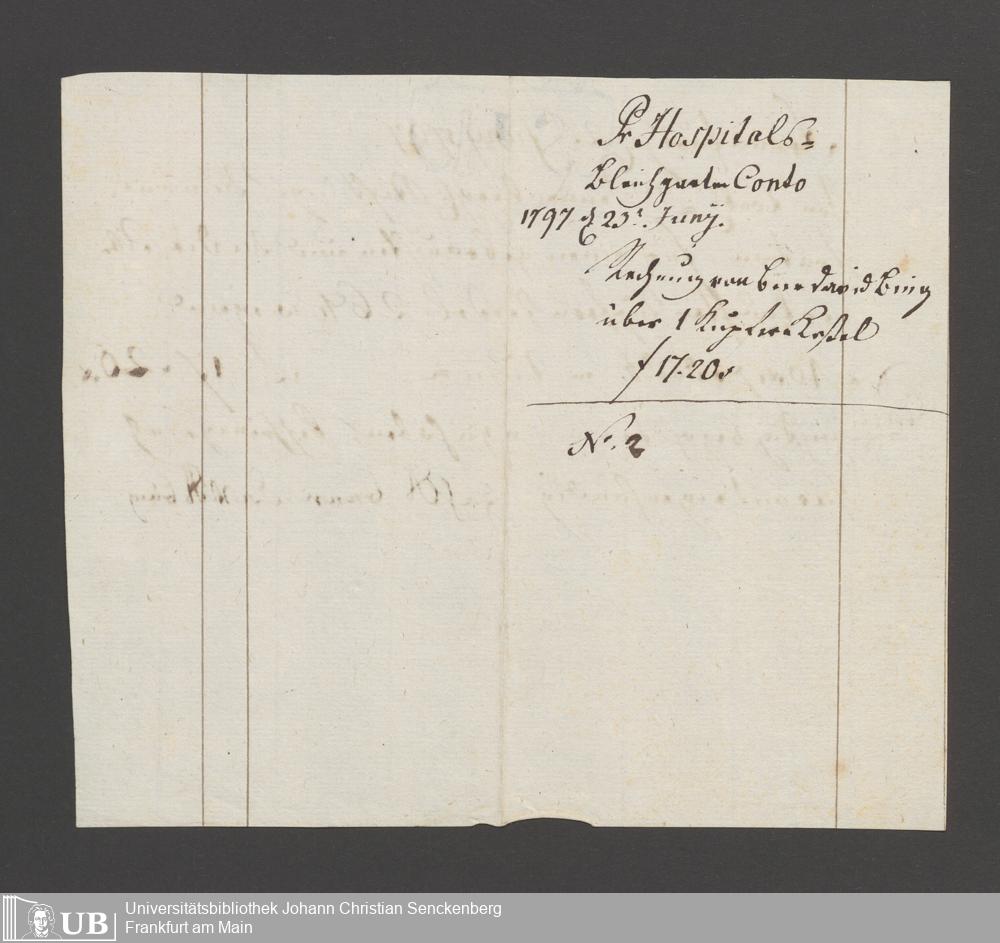 Pr Hospitals=
Bleichgarten Conto
1797 d 23t. Junÿ.
Rechnung von Beer David Bing
über 1 Kupferkeßel
f 17.20x
No. 2
UB
Universitätsbibliothek Johann Christian Senckenberg
Frankfurt am Main